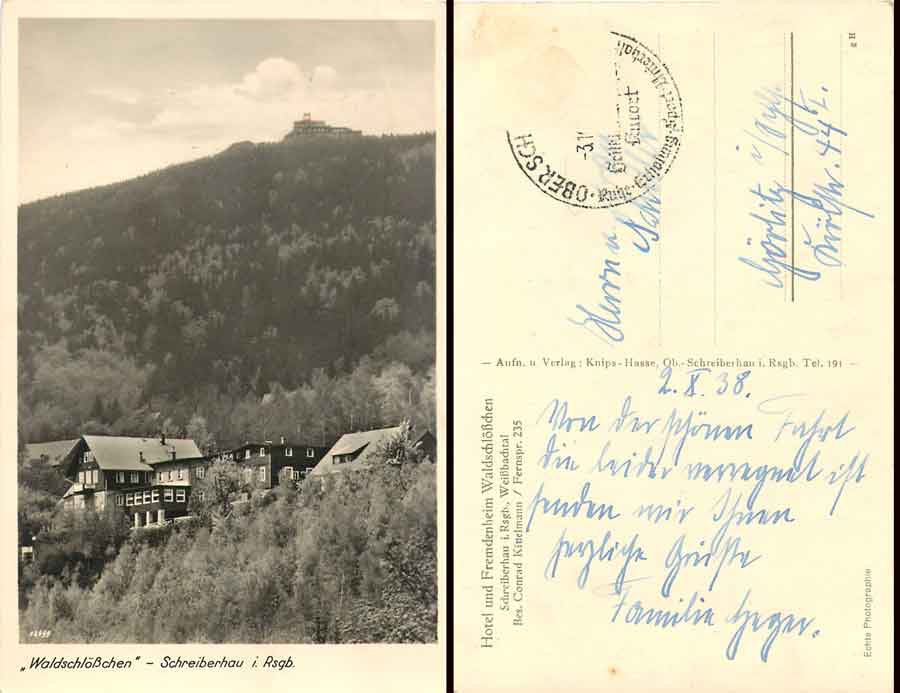 12699
„Waldschlößchen" – Schreiberhau i. Rsgb.
OBERSCH
- 3.1
Ruhe-Erholung-Sport-Unterhalt
Kurort
Herrn u.
Görlitz i/Schl.
44 I.
II 2
– Aufn. u Verlag: Knips-Hasse, Ob.-Schreiberhau i. Rsgb. Tel. 191 –
Hotel und Fremdenheim Waldschlößchen
Schreiberhau i. Rsgb., Weißbachtal
Bes. Conrad Kittelmann / Fernspr. 235
2. X. 38.
Von der schönen Fahrt
die leider verregnet ist
senden wir Ihnen
herzliche Grüße
Familie Heger.
Echte Photographie